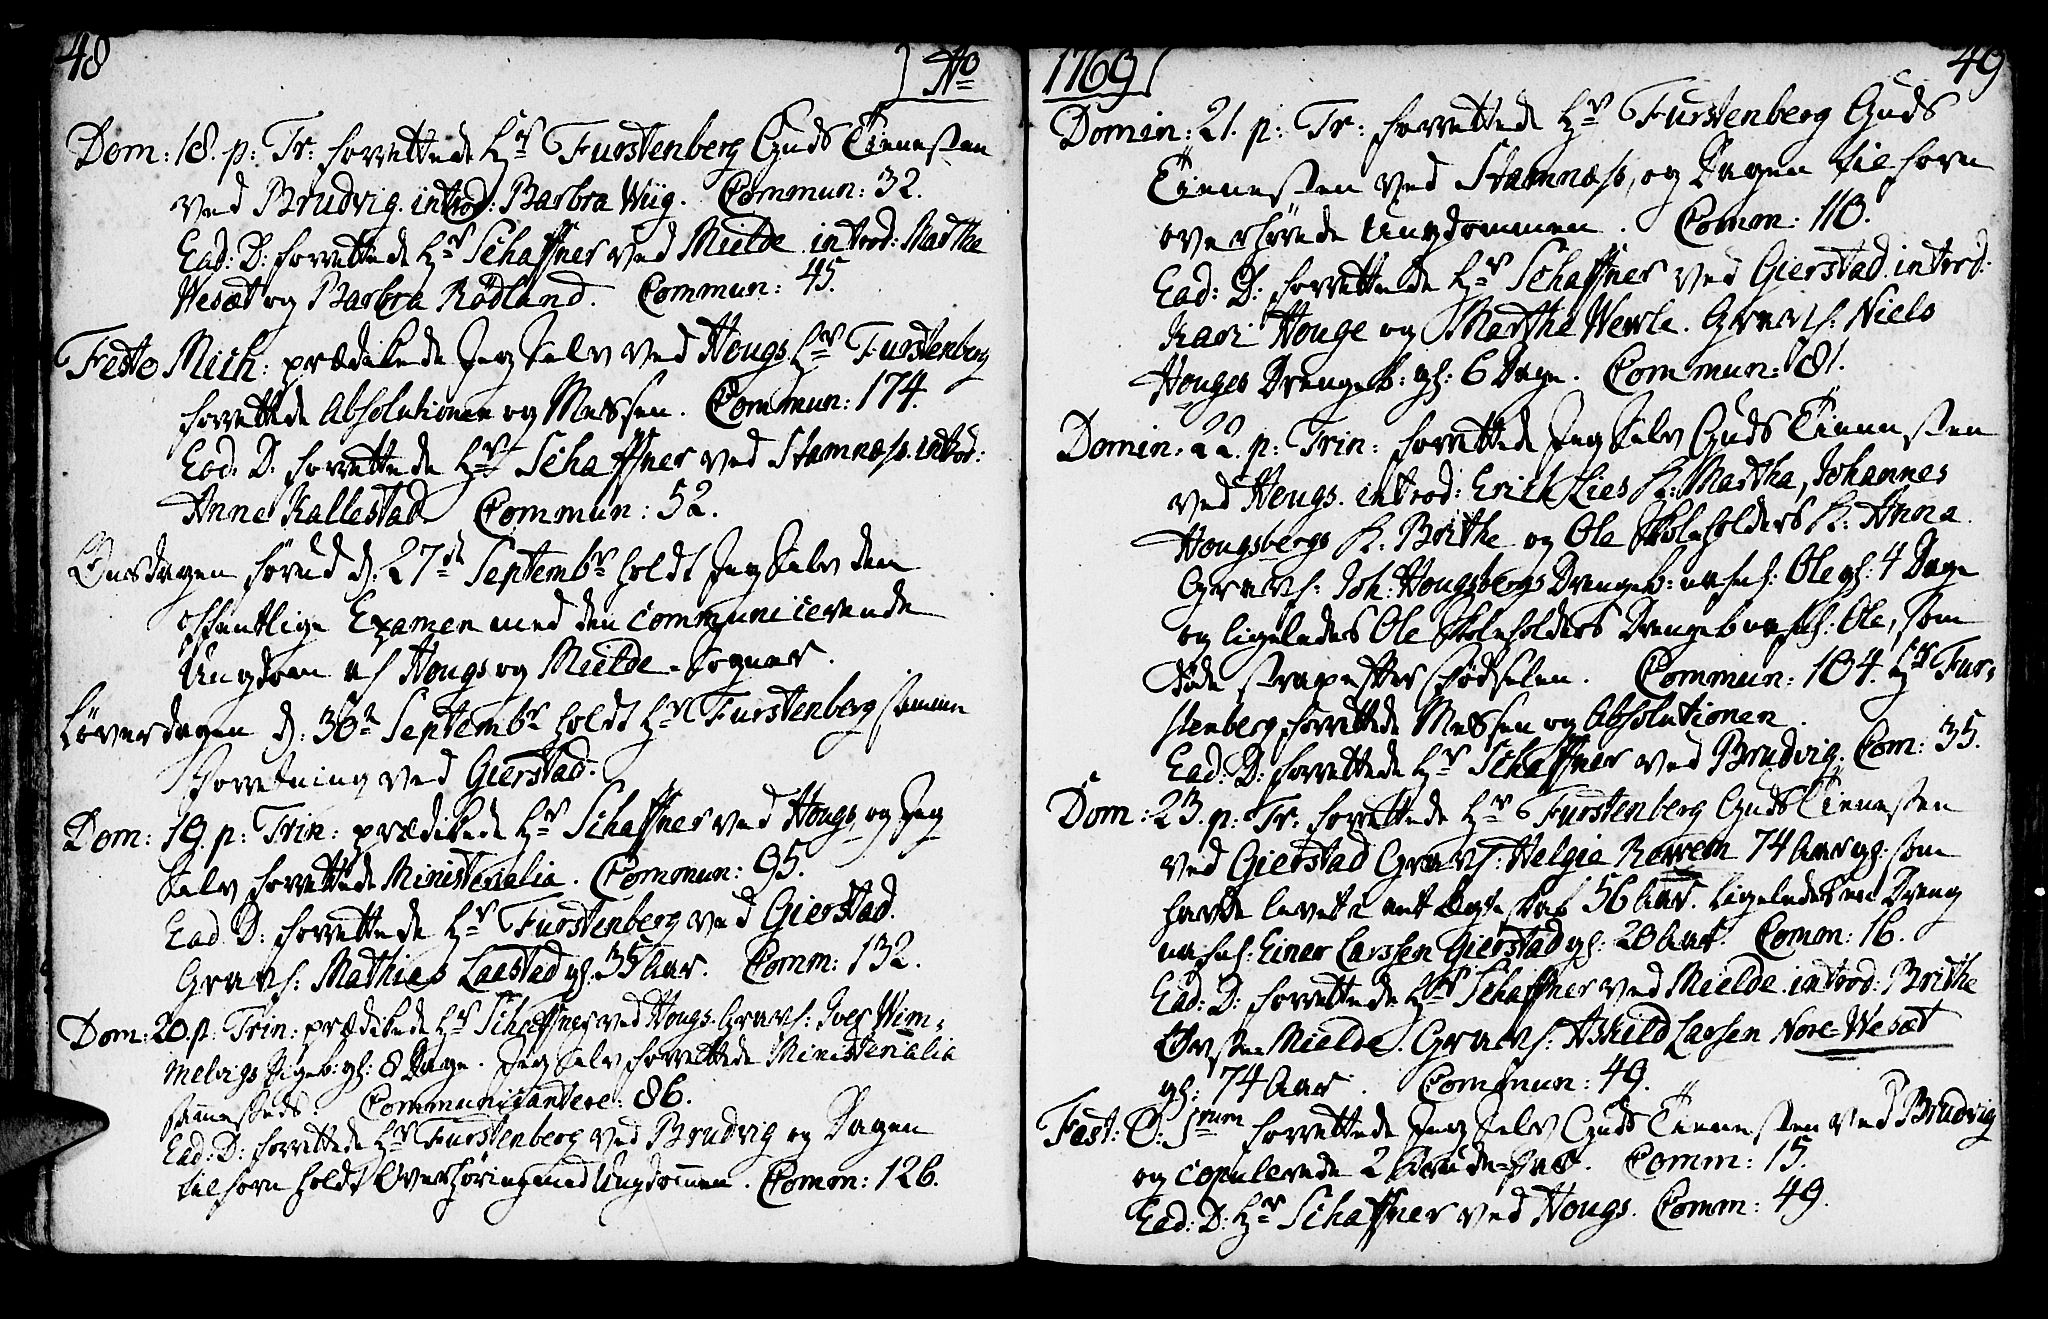 48
Ao
Dom: 18. p: Tr: forrettede Hr Furstenberg Guds Tienesten
ved Brudvig. introd: Barbra Wiig. Commun: 32.
Ead: D: forrettede Hr Schaffner ved Mielde introd: Marthe
Wesæt og Barbra Rødland. Commun: 45.
Festo Mich: prædikede Jeg Selv ved Hougs. Hr Furstenberg
forrettede Absolutionen og Messen. Commun: 174.
Ead: D: forrettede Hr Schaffner ved Stamnæs. introd:
Anne Kallestad. Commun: 52.
Onsdagen forud d: 27de Septembr holdt Jeg Selv den
offentlige Examen med den communicerende
Ungdom af Hougs og Mielde-Sogner.
Løverdagen d: 30te Septembr holdt Hr Furstenberg samme
Forretning ved Gierstad.
Dom: 19. p: Trin: prædikede Hr Schaffner ved Hougs og Jeg
Selv forrettede Ministerialia. Commun: 95.
Ead. D: forrettede Hr Furstenberg ved Gierstad.
Gravf: Mathies Laestad gl. 35 Aar. Comm: 132.
Dom: 20. p: Trin: prædikede Hr Schaffner ved Hougs. Gravf: Iver Wim-
melvigs Pigeb: gl: 8 Dage. Jeg Selv forrettede Ministerialia
sammesteds. Communicantere: 86.
Ead: D: forrettede Hr Furstenberg ved Brudvig og Dagen
tilforn holdt Overhøring med Ungdommen. Comm: 126.
1769
49
Domin: 21. p: Tr: forrettede Hr Furstenberg Guds
Tienesten ved Stamnæs, og Dagen tilforn
overhørede Ungdommen. Comm: 110.
Ead: D: forrettede Hr Schaffner ved Gierstad. introd:
Kari Houge og Marthe Wevle. Gravf: Niels
Houges Drengeb: gl: 6 Dage. Commun: 81.
Domin: 22. p: Trin: forrettede Jeg Selv Guds Tienesten
ved Hougs. introd: Erich Lies K: Martha, Johannes
Hougsbergs K: Brithe og Ole Skoleholders K: Anna.
Gravf: Joh: Hougsbergs Drengeb: nafnl: Ole gl: 4 Dage
og ligeledes Ole Skoleholders Drengeb nafnl: Ole, som
døde strax efter Fødselen. Commun: 104. Hr Fur-
stenberg forrettede Messen og Absolutionen.
Ead: D: forrettede Hr Schaffner ved Brudvig. Com: 35.
Dom: 23. p: Tr: forrettede Hr Furstenberg Guds Tienesten
ved Gierstad Gravf: Helgie Rovvem 74 Aar gl. som
havde levet i ægteskab 56 Aar. ligeledes en Dreng
nafnl: Einer Larssen Gierstad gl: 20 Aar. Comm: 16.
Ead: D: forrettede Hr Schaffner ved Mielde. introd: Brithe
Øvste Mielde. Gravf: Askild Larsen Nore-Wesæt
gl: 74 Aar. Commun: 49.
Fest: O: Srum forrettede Jeg Selv Guds Tienesten ved Brudvig
og copulerede 2 Brude-Par. Comm: 15.
Ead: D: Hr Schaffner ved Hougs. Comm: 49.